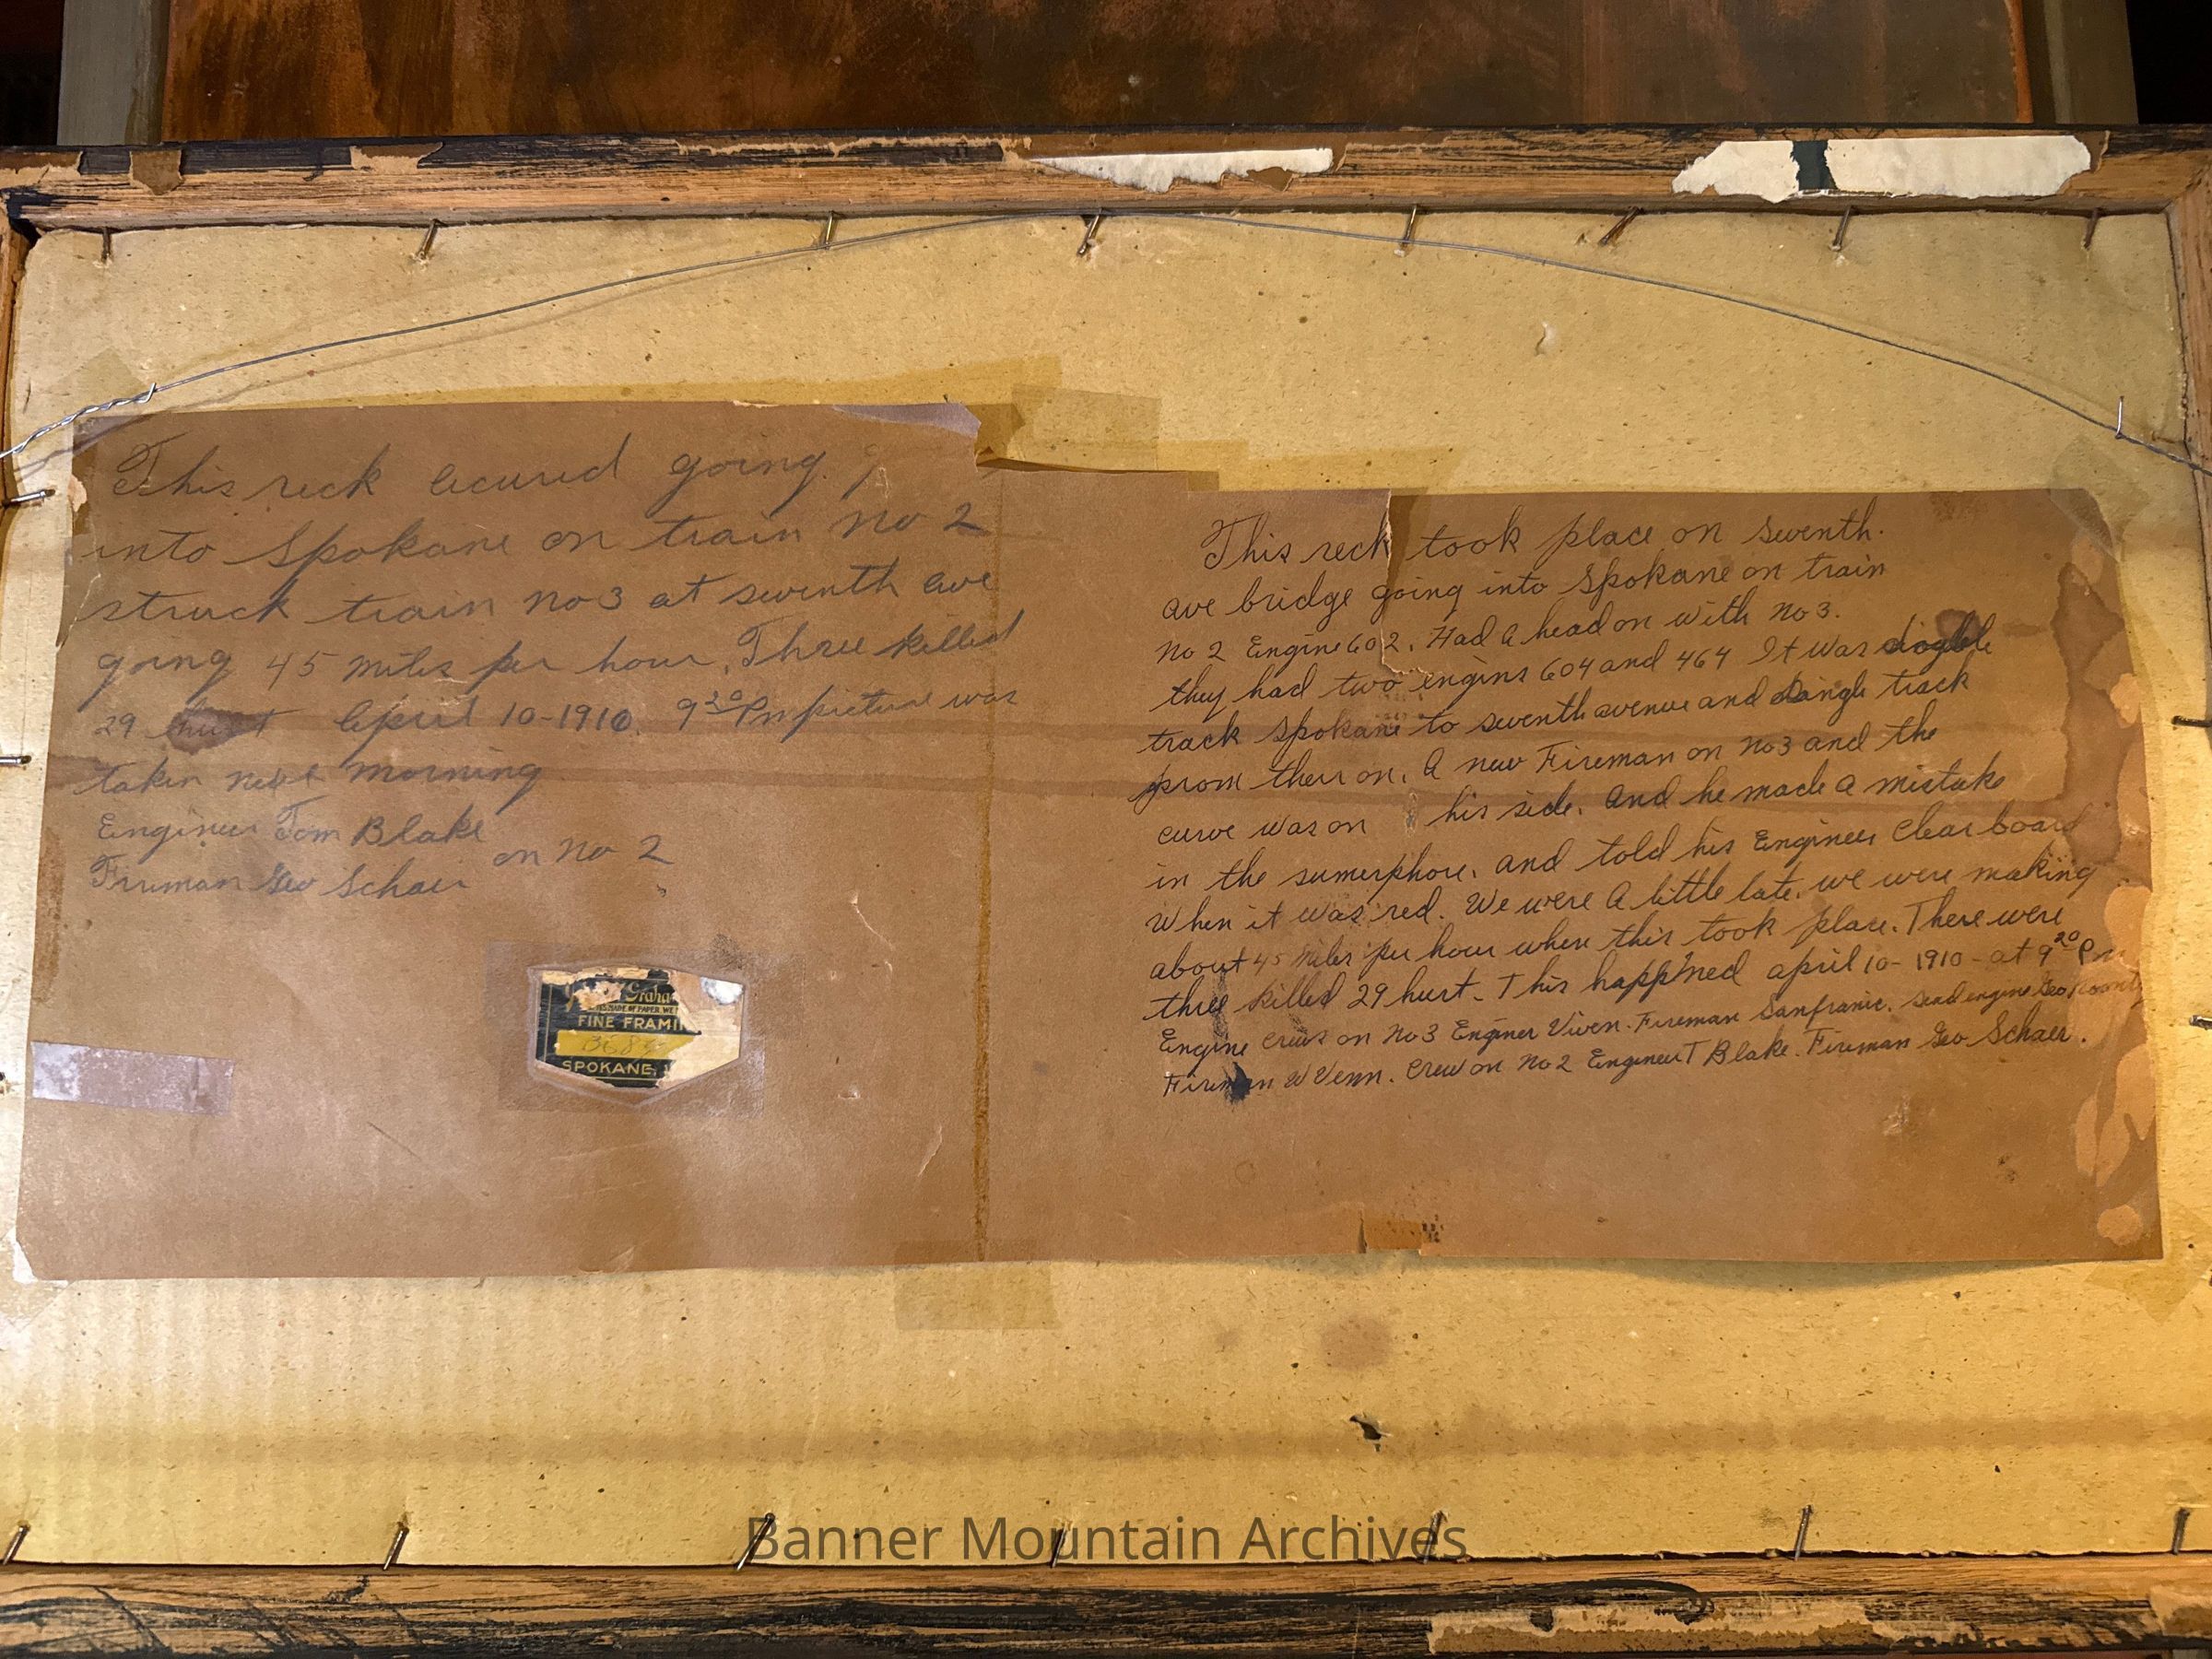 This reck occured going
into Spokane on train no 2
struck train no 3 at seventh ave
going 45 miles per hour. Three killed
29 hurt April 10-1910. 9 30 Pm picture was
taken next morning
Engineer Tom Blake
on no 2
Fireman Geo Schaer
FINE FRAMI
SPOKANE,
This reck took place on seventh.
ave bridge going into Spokane on train
no 2 Engine 602. Had a head on with no 3.
they had two engins 604 and 464 It was double
track Spokane to seventh avenue and single track
from there on. A new Fireman on no 3 and the
curve was on his side. And he made a mistake
in the sumerphore. and told his Engineer Clear board
When it was red. We were a little late. we were making
about 45 miles per hour when this took place. There were
three killed 29 hurt. This happ'ned april 10- 1910- at 9 20 Pm
Engine crews on no 3 Enginer Viven. Fireman Sanfranic. send engine Geo
Fireman W Venn. Crew on no 2 Engineer T Blake. Fireman Geo Schaer.
Banner Mountain Archives